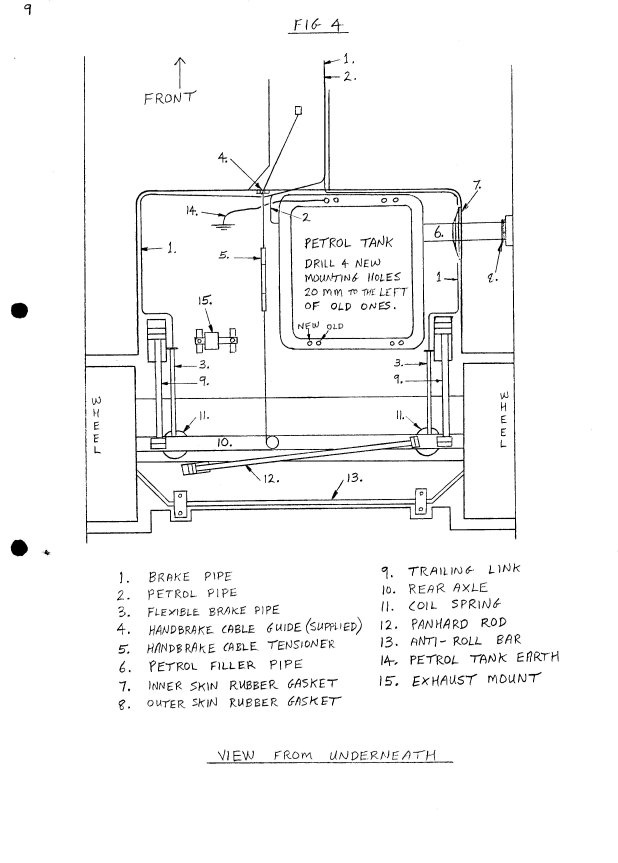 9
FIG 4
1.
2.
FRONT
4.
7.
14.
2
6.
1.
5.
8.
PETROL TANK
DRILL 4 NEW
MOUNTING HOLES
20 MM TO THE LEFT
OF OLD ONES.
1
15.
NEW OLD
3.
3.
9.
9.
WHEEL
WHEEL
11.
11.
10.
12.
13.
1. BRAKE PIPE
2. PETROL PIPE
3. FLEXIBLE BRAKE PIPE
4. HANDBRAKE CABLE GUIDE (SUPPLIED)
5. HANDBRAKE CABLE TENSIONER
6. PETROL FILLER PIPE
7. INNER SKIN RUBBER GASKET
8. OUTER SKIN RUBBER GASKET
9. TRAILING LINK
10. REAR AXLE
11. COIL SPRING
12. PANHARD ROD
13. ANTI-ROLL BAR
14. PETROL TANK EARTH
15. EXHAUST MOUNT
VIEW FROM UNDERNEATH